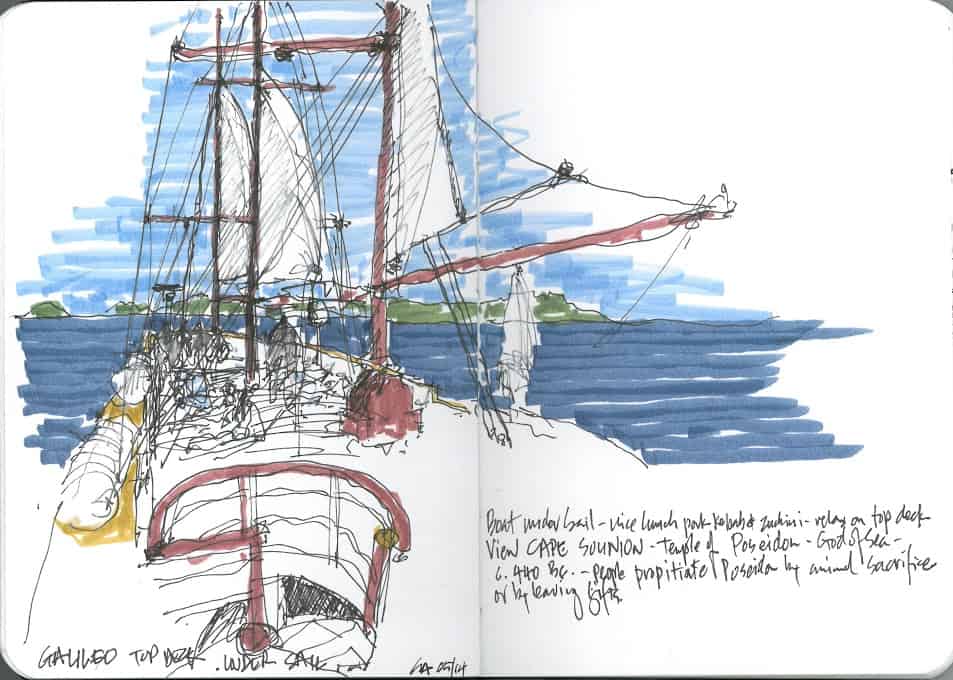 Boat under Sail - nice lunch pork kebabs & zuchini - relax on top deck
View CAPE SOUNION - Temple of Poseidon - God of Sea -
c. 440 BC. - people propitiate Poseidon by animal sacrifice
or by leaving gifts.
GALILEO TOP DECK . UNDER SAIL
05/14